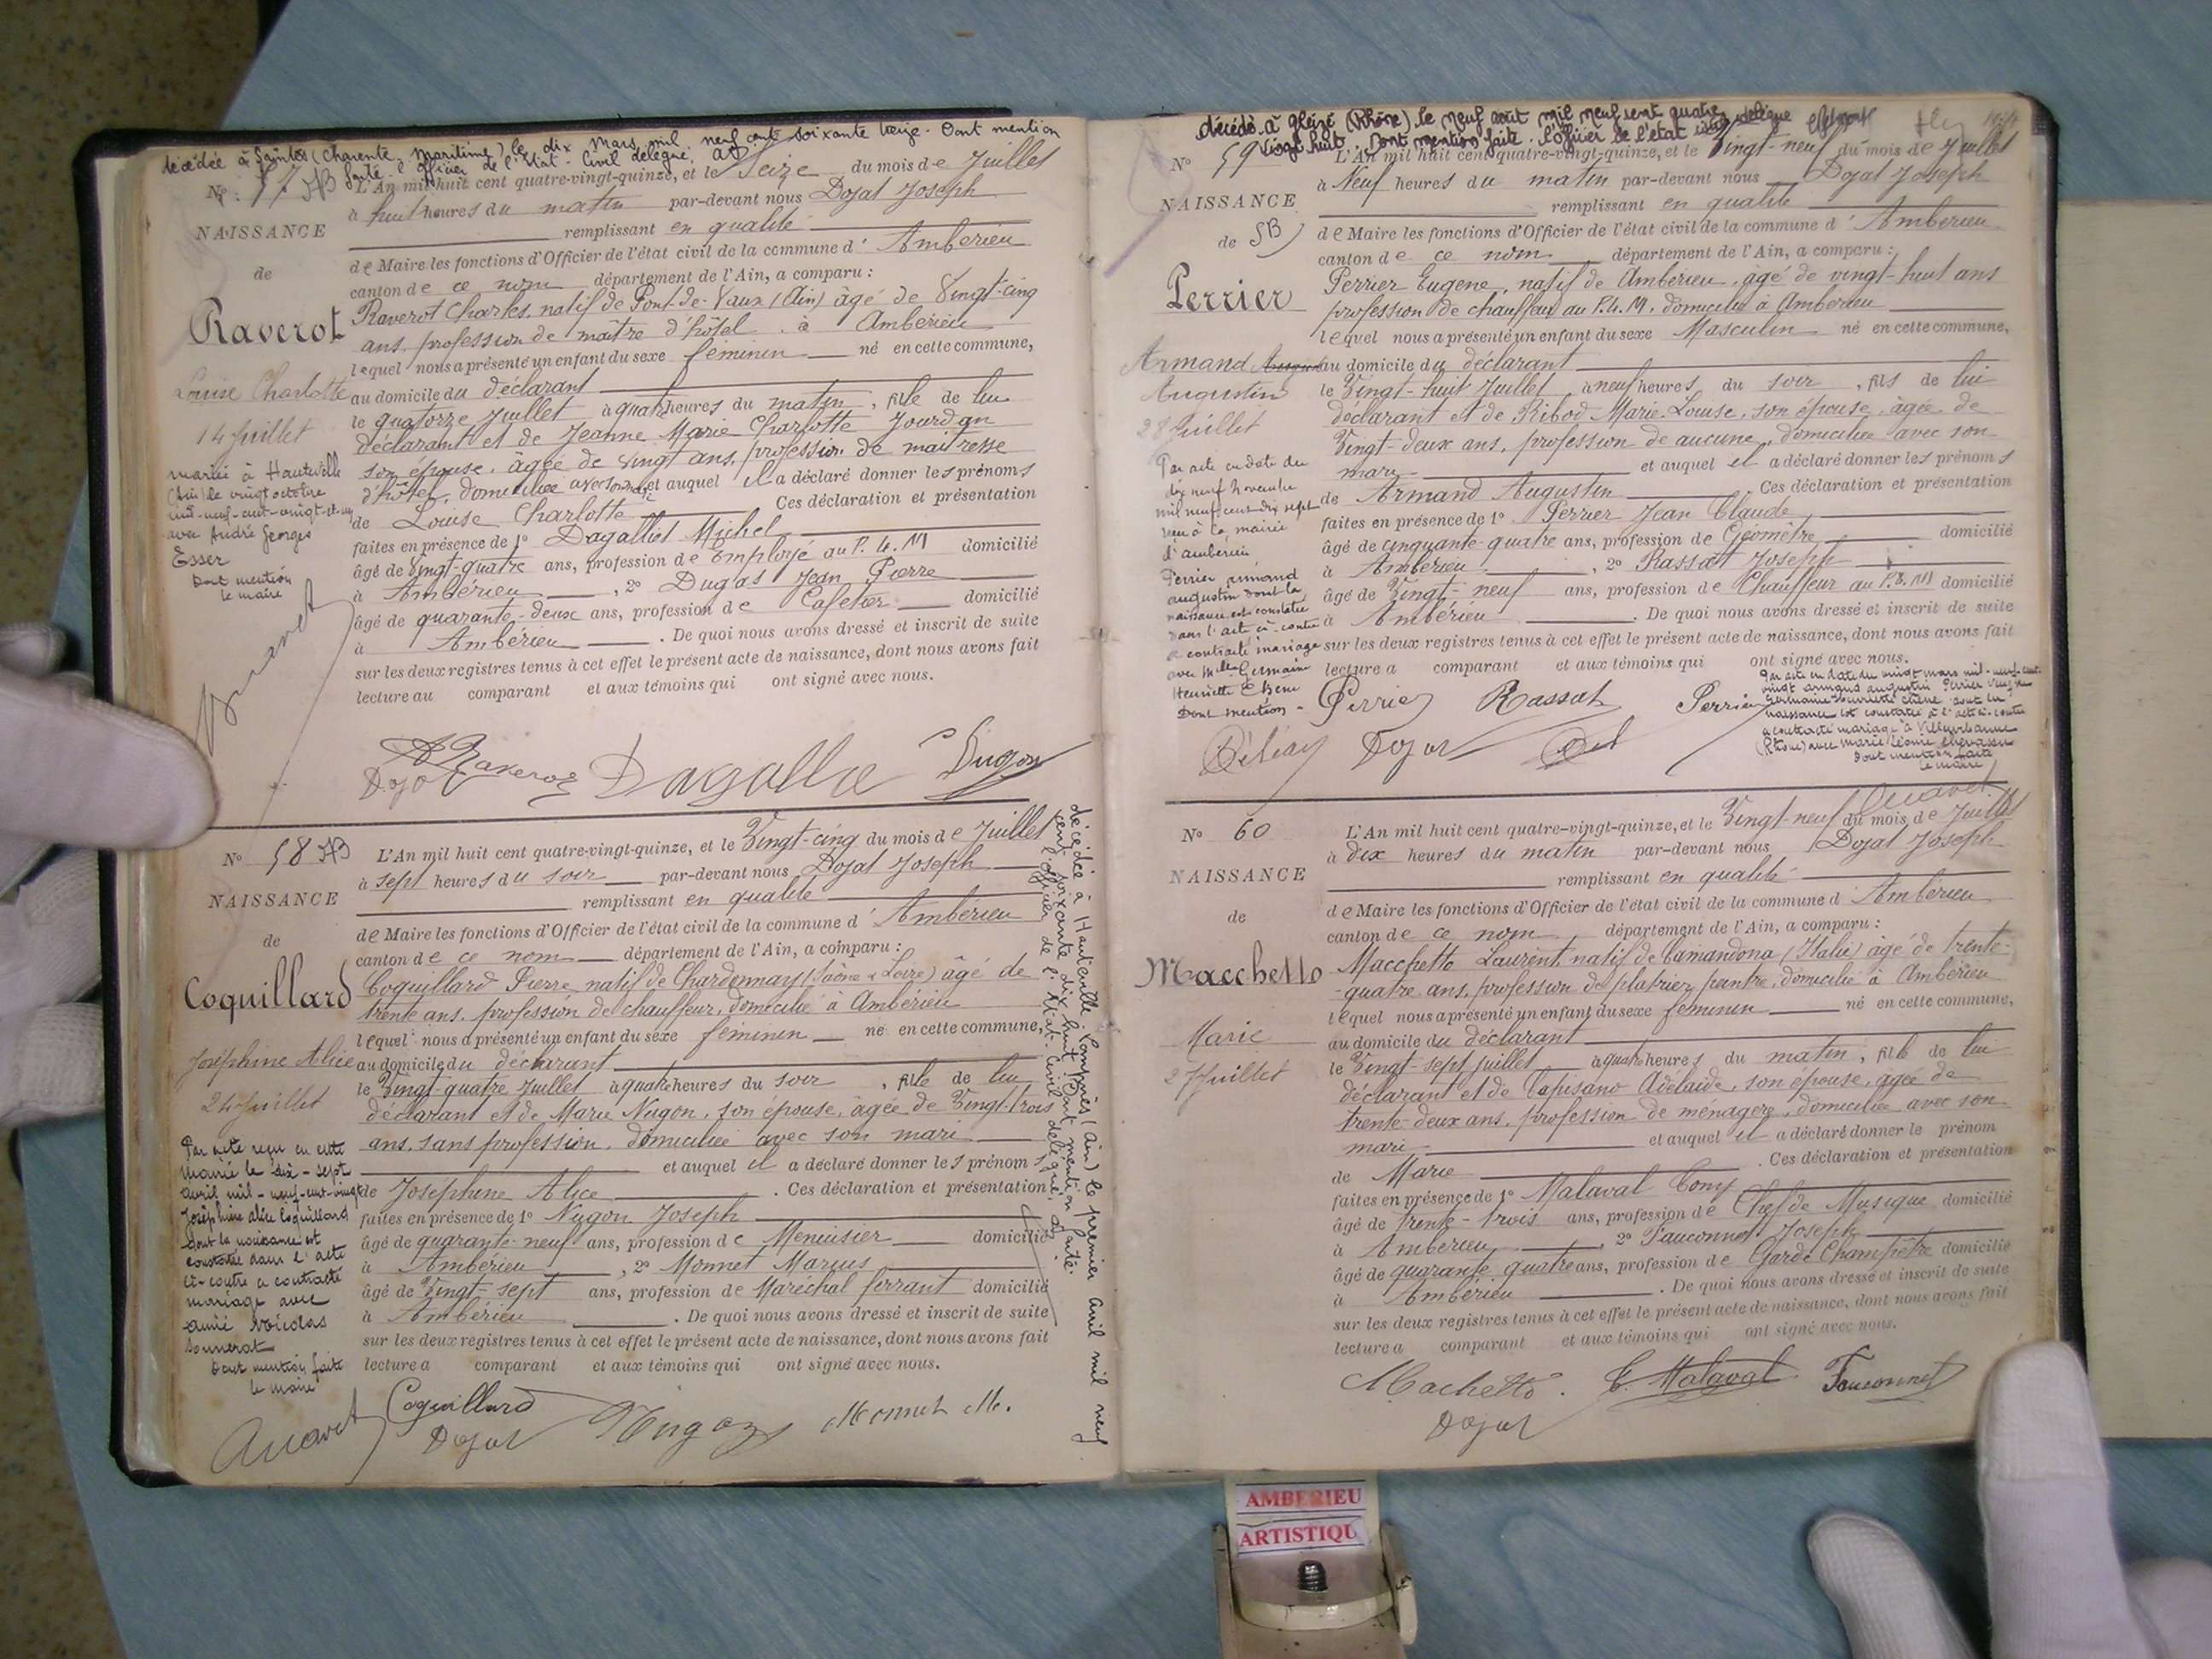 décédée à Saintes (Charente Maritime) le dix Mars mil neuf cent soixante treize. Dont mention
faite. l'officier de l'Etat-Civil délégué,
N° 57 L'An mil huit cent quatre-vingt-quinze, et le Seize du mois de Juillet
à huit heures du matin par-devant nous Dojat Joseph
NAISSANCE
remplissant en qualité
de
de Maire les fonctions d'Officier de l'état civil de la commune d'Ambérieu
canton de ce nom département de l'Ain, a comparu :
Raverot
Raverot Charles, natif de Pont-de-Vaux (Ain) âgé de Vingt-cinq
ans, profession de maître d'hôtel à Ambérieu
lequel nous a présenté un enfant du sexe féminin né en cette commune,
Louise Charlotte
au domicile du déclarant
14 Juillet
le quatorze Juillet à quatre heures du matin, fille de lui
déclarant et de Jeanne Marie Charlotte Jourdan
son épouse, âgée de vingt ans, profession de maîtresse
d'hôtel, domiciliée avec son mari et auquel il a déclaré donner les prénoms
de Louise Charlotte Ces déclaration et présentation
mariée à Hauteville
(Ain) le vingt octobre
mil-neuf-cent-vingt-et-un
avec André Georges
Esser
Dont mention
le maire
faites en présence de 1° Dagallier Michel
âgé de Vingt-quatre ans, profession de Employé au P.L.M domicilié
à Ambérieu, 2° Dugas Jean Pierre
âgé de quarante-deux ans, profession de Cafetier domicilié
à Ambérieu. De quoi nous avons dressé et inscrit de suite
sur les deux registres tenus à cet effet le présent acte de naissance, dont nous avons fait
lecture au comparant et aux témoins qui ont signé avec nous.
Raverot
Dojat
N° 58 L'An mil huit cent quatre-vingt-quinze, et le Vingt-cinq du mois de Juillet
à sept heures du soir par-devant nous Dojat Joseph
NAISSANCE
remplissant en qualité
de
de Maire les fonctions d'Officier de l'état civil de la commune d'Ambérieu
canton de ce nom département de l'Ain, a comparu :
Coquillard
Coquillard Pierre natif de Chardonnay (Saône & Loire) âgé de
trente ans, profession de chauffeur, domicilié à Ambérieu
lequel nous a présenté un enfant du sexe féminin né en cette commune,
Joséphine Alice
au domicile du déclarant
24 Juillet
le Vingt-quatre Juillet à quatre heures du soir, fille de lui
déclarant et de Marie Nugon, son épouse, âgée de Vingt-trois
ans, sans profession, domiciliée avec son mari
et auquel il a déclaré donner les prénoms
de Joséphine Alice. Ces déclaration et présentation
faites en présence de 1° Nugon Joseph
âgé de quarante-neuf ans, profession de Menuisier domicilié
à Ambérieu, 2° Monnet Marius
âgé de Vingt-sept ans, profession de Maréchal ferrant domicilié
à Ambérieu. De quoi nous avons dressé et inscrit de suite
sur les deux registres tenus à cet effet le présent acte de naissance, dont nous avons fait
lecture a comparant et aux témoins qui ont signé avec nous.
Par acte reçu en cette
mairie le dix-sept
avril mil-neuf-cent-vingt
Joséphine Alice Coquillard
dont la naissance est
constatée dans l'acte
ci-contre a contracté
mariage avec
Aimé Nicolas
Sonnerat
Dont mention faite
le maire
décédée à Hauteville Lompnès (Ain) le premier avril mil neuf
cent soixante dix huit. Dont mention faite.
l'officier de l'Etat-Civil délégué.
Coquillard
Dojat
Monnet M.
décédé à Gleizé (Rhône) le neuf août mil neuf cent quatre
vingt huit. Dont mention faite. l'officier de l'état civil délégué
N° 59 L'An mil huit cent quatre-vingt-quinze, et le Vingt-neuf du mois de Juillet
à Neuf heures du matin par-devant nous Dojat Joseph
NAISSANCE
remplissant en qualité
de
de Maire les fonctions d'Officier de l'état civil de la commune d'Ambérieu
canton de ce nom département de l'Ain, a comparu :
Perrier
Perrier Eugène, natif de Ambérieu, âgé de vingt-huit ans
profession de chauffeur au P.L.M, domicilié à Ambérieu
lequel nous a présenté un enfant du sexe Masculin né en cette commune,
Armand
Augustin
au domicile du déclarant
28 Juillet
le Vingt-huit Juillet à neuf heures du soir, fils de lui
déclarant et de Ribod Marie Louise, son épouse, âgée de
Vingt-deux ans, profession de aucune, domiciliée avec son
mari et auquel il a déclaré donner les prénoms
de Armand Augustin. Ces déclaration et présentation
faites en présence de 1° Perrier Jean Claude
âgé de cinquante-quatre ans, profession de Géomètre domicilié
à Ambérieu, 2° Rassat Joseph
âgé de Vingt-neuf ans, profession de Chauffeur au P.L.M domicilié
à Ambérieu. De quoi nous avons dressé et inscrit de suite
sur les deux registres tenus à cet effet le présent acte de naissance, dont nous avons fait
lecture a comparant et aux témoins qui ont signé avec nous.
Par acte en date du
dix neuf Novembre
mil neuf cent dix sept
reçu à la mairie
d'Ambérieu
Perrier Armand
Augustin dont la
naissance est constatée
dans l'acte ci-contre
a contracté mariage
avec Mlle Germaine
Henriette Chene
Dont mention
Par acte en date du vingt mars mil-neuf-cent-
vingt Armand Augustin Perrier veuf de
Germaine Henriette Chène dont la
naissance est constatée à l'acte ci-contre
a contracté mariage à Villeurbanne
(Rhône) avec Marie Léonie
Dont mention faite
le maire
Perrier Rassat Perrier
Dojat
N° 60 L'An mil huit cent quatre-vingt-quinze, et le Vingt-neuf du mois de Juillet
à dix heures du matin par-devant nous Dojat Joseph
NAISSANCE
remplissant en qualité
de
de Maire les fonctions d'Officier de l'état civil de la commune d'Ambérieu
canton de ce nom département de l'Ain, a comparu :
Macchetto
Macchetto Laurent, natif de Camandona (Italie) âgé de trente-
quatre ans, profession de plâtrier peintre, domicilié à Ambérieu
lequel nous a présenté un enfant du sexe féminin né en cette commune,
Marie
au domicile du déclarant
27 Juillet
le Vingt-sept juillet à quatre heures du matin, fille de lui
déclarant et de Capisano Adélaïde, son épouse, âgée de
trente-deux ans, profession de ménagère, domiciliée avec son
mari et auquel il a déclaré donner le prénom
de Marie. Ces déclaration et présentation
faites en présence de 1° Malaval Tony
âgé de trente-trois ans, profession de Chef de Musique domicilié
à Ambérieu, 2° Fauconnet Joseph
âgé de quarante quatre ans, profession de Garde Champêtre domicilié
à Ambérieu. De quoi nous avons dressé et inscrit de suite
sur les deux registres tenus à cet effet le présent acte de naissance, dont nous avons fait
lecture a comparant et aux témoins qui ont signé avec nous.
Machetto. Malaval Fauconnet
Dojat
AMBERIEU
ARTISTIQU